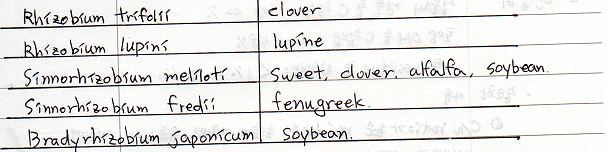 Rhizobium trifolii clover
Rhizobium lupini lupine
Sinnorhizobium meliloti sweet, clover, alfalfa, soybean.
Sinnorhizobium fredii fenugreek.
Bradyrhizobium japonicum soybean.